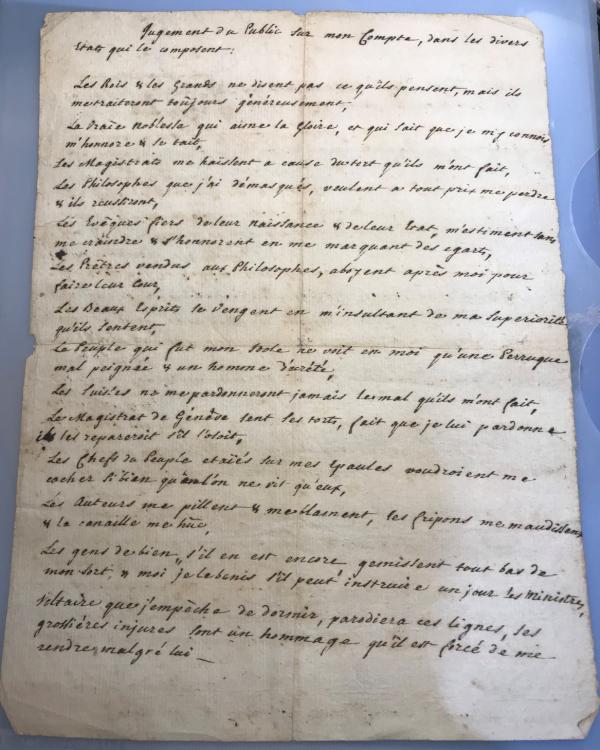 Jugement du Public sur mon Compte, dans les divers
Etats qui le composent:
Les Rois & les Grands ne disent pas ce qu'ils pensent, mais ils
me traiteront toujours généreusement,
La Vraïe Noblesse qui aime la Gloire, et qui sait que je m'y connois
m'honnore & se tait,
Les Magistrats me haïssent a cause du tort qu'ils m'ont fait,
Les Philosophes que j'ai démasqués, veulent a tout prix me perdre
& ils reussiront,
Les Evêques fiers de leur Naissance & de leur Etat, m'estiment sans
me craindre & s'honnorent en me marquant des egarts,
Les Prêtres vendus aux Philosophes, aboyent après moi pour
faire leur Cour,
Les Beaux Esprits se Vengent en m'insultant de ma Superiorité
qu'ils sentent,
Le Peuple qui fut mon Idole ne voit en moi qu'une Perruque
mal peignée & un homme décrété,
Les Suisses ne me pardonneront jamais le mal qu'ils m'ont fait,
Le Magistrat de Génêve sent ses torts, sait que je lui pardonne
& les repareroit s'il l'osoit,
Les Chefs du Peuple etaiés sur mes Epaules voudroient me
cacher si bien qu'on n'en vit qu'eux,
Les Auteurs me pillent & me blament, les fripons me maudissent
& la canaille me hue,
Les gens de bien, s'il en est encore, gemissent tout bas de
mon sort, & moi je le benis s'il peut instruire un jour les Ministres,
Voltaire que j'empêche de dormir, parodiera ces lignes, ses
grossières injures sont un hommage qu'il est forcé de me
rendre malgré lui —